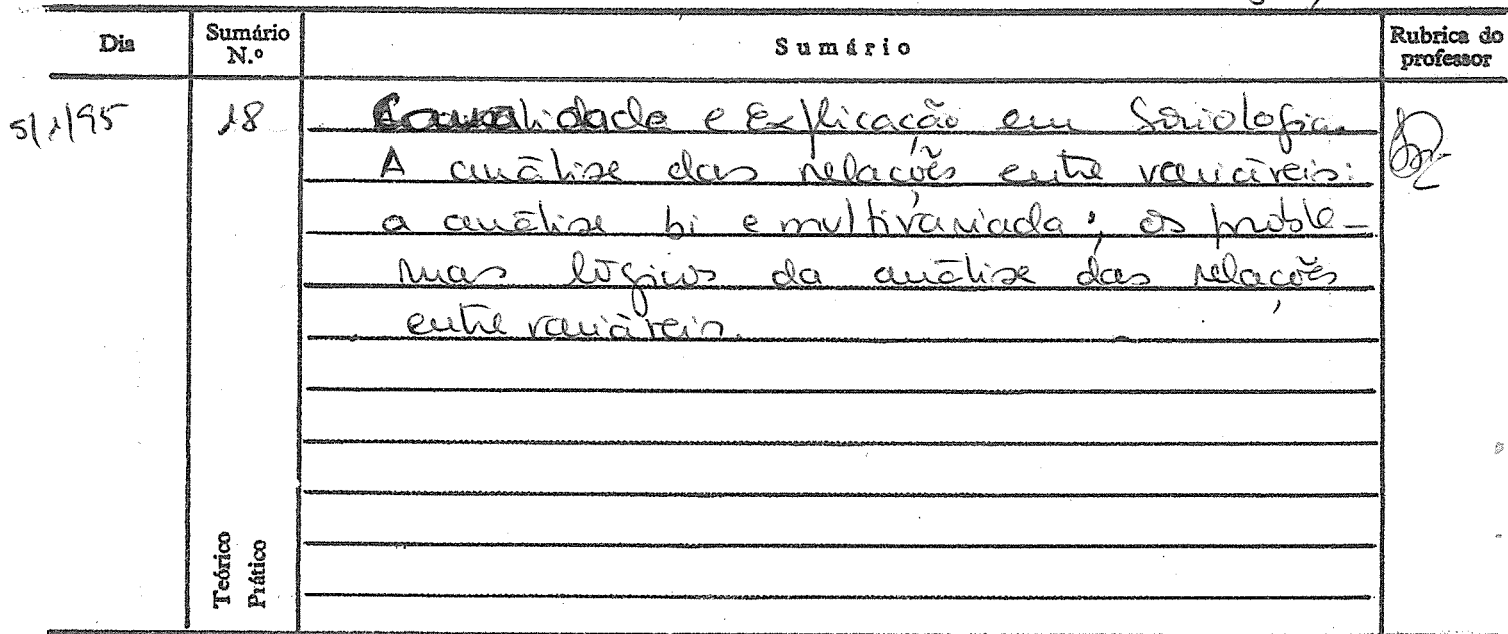 Dia
Sumário N.º
Sumário
Rubrica do professor
5/1/95
18
Causalidade e Explicação em Sociologia.
A análise das relações entre variáveis:
a análise bi e multivariada; os proble-
mas lógicos da análise das relações
entre variáveis.
Teórico
Prático